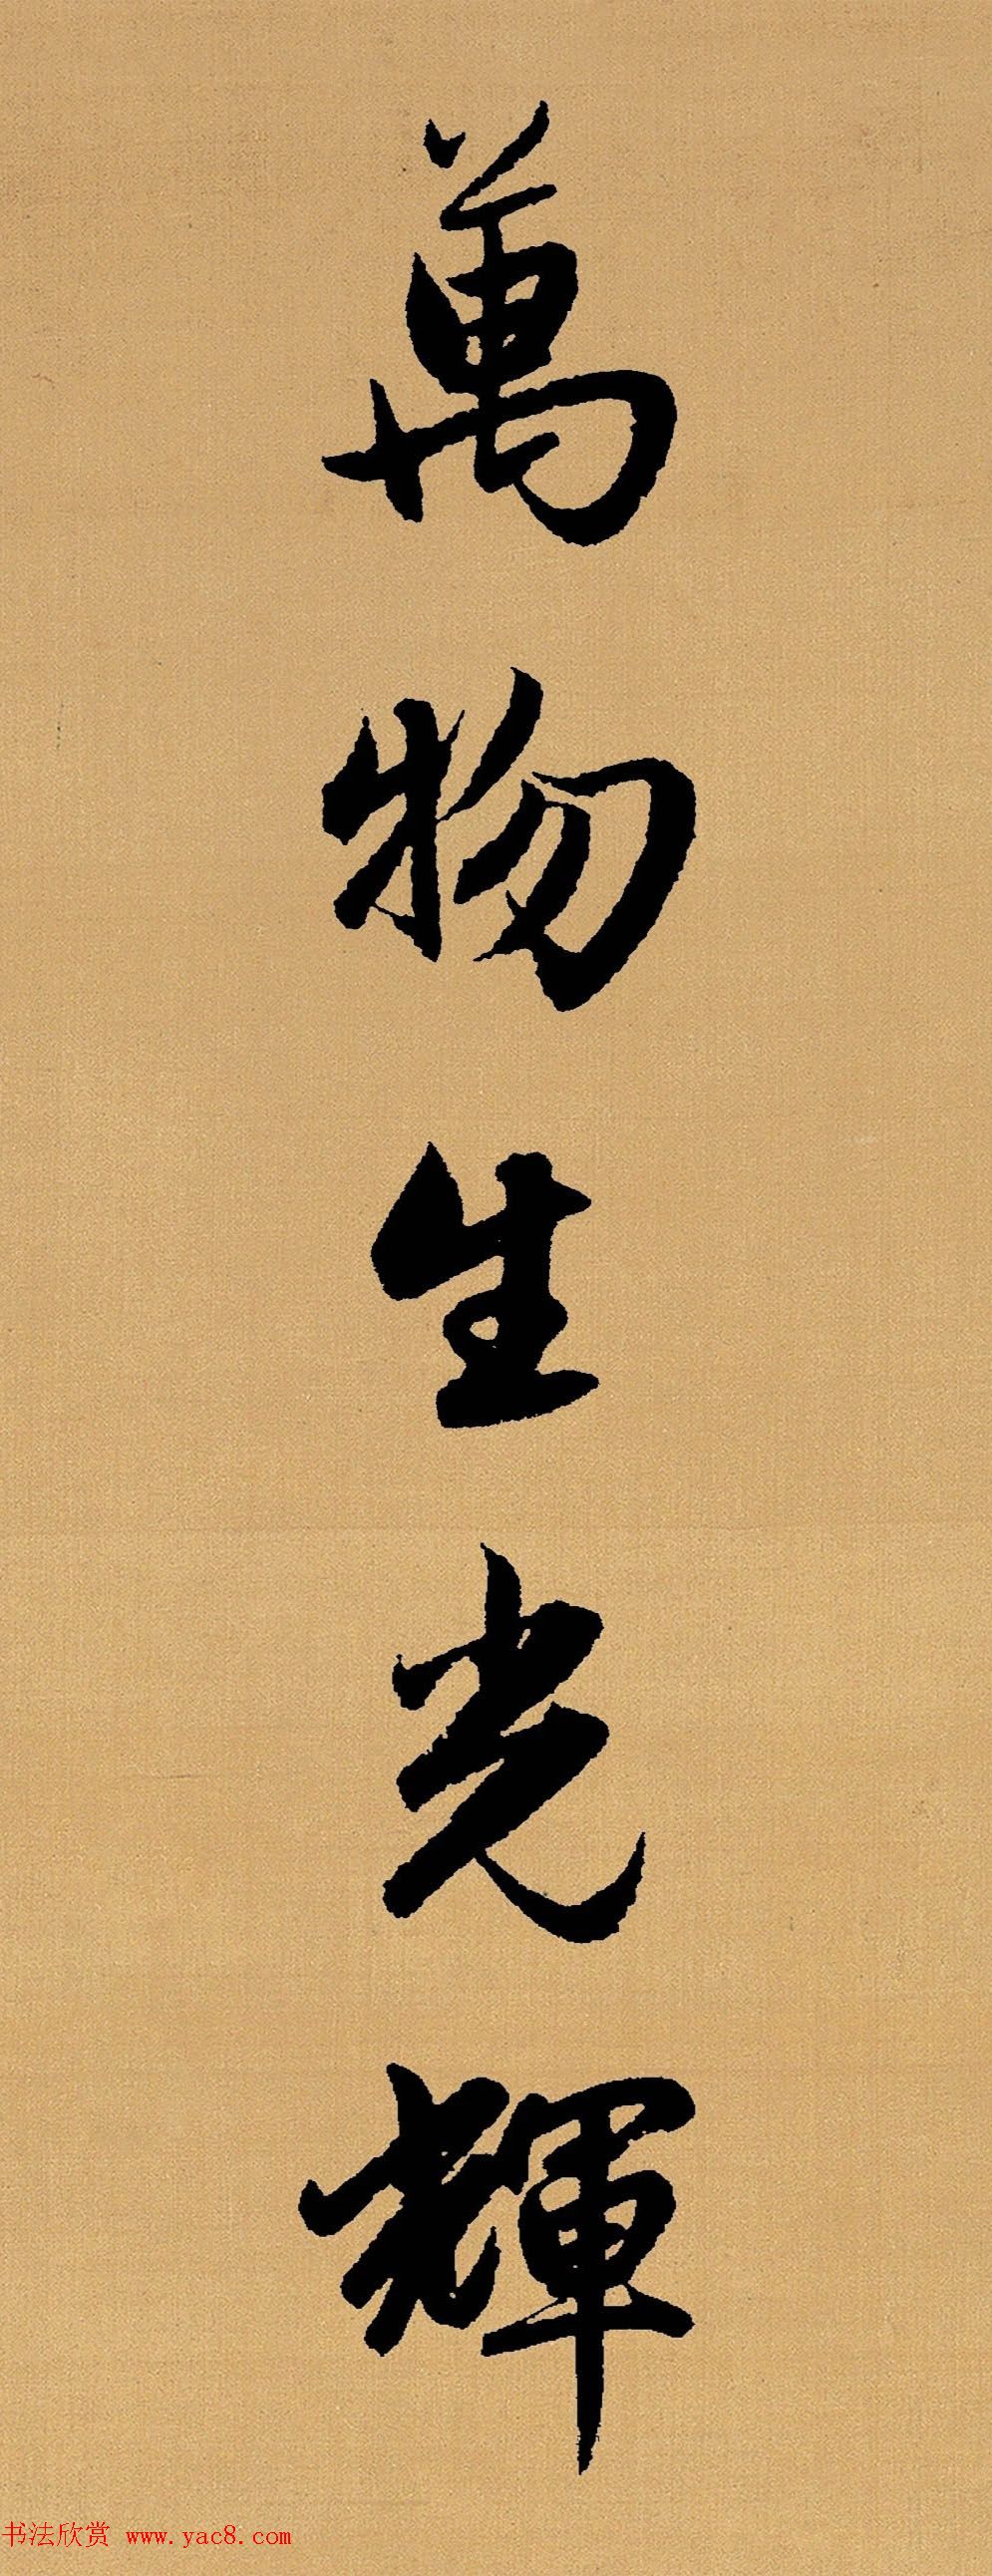 萬物生光輝
书法欣赏 www.yac8.com